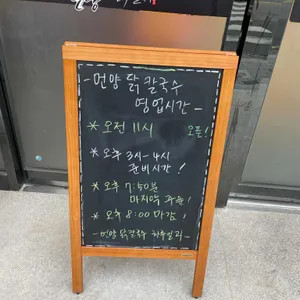 - 언양 닭칼국수
영업시간 -
* 오전 11시 오픈!
* 오후 3시-4시
준비시간!
* 오후 7:50분
마지막 주문!
* 오후 8:00 마감!
- 언양 닭칼국수